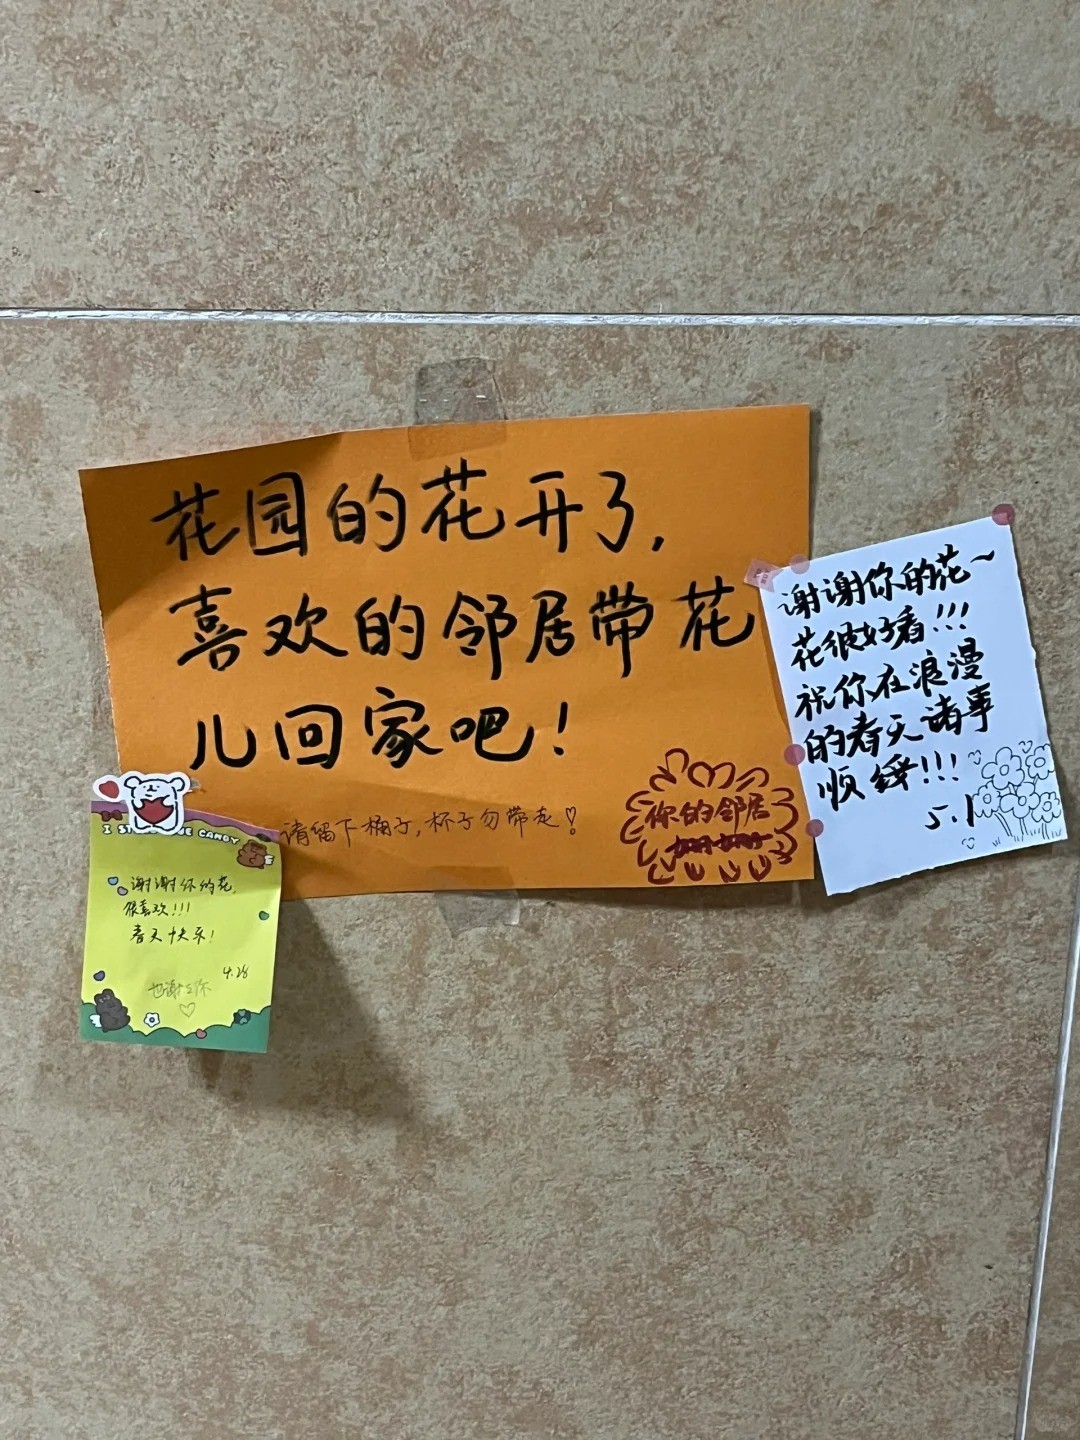 花园的花开了,
喜欢的邻居带花
儿回家吧!
请留下桶子,杯子勿带走!
你的邻居
谢谢你的花~
花很好看!!!
祝你在浪漫
的春天诸事
顺绎!!!
5.1
CANDY
谢谢你的花,
很喜欢!!!
春天快乐!
4.28
也谢谢你